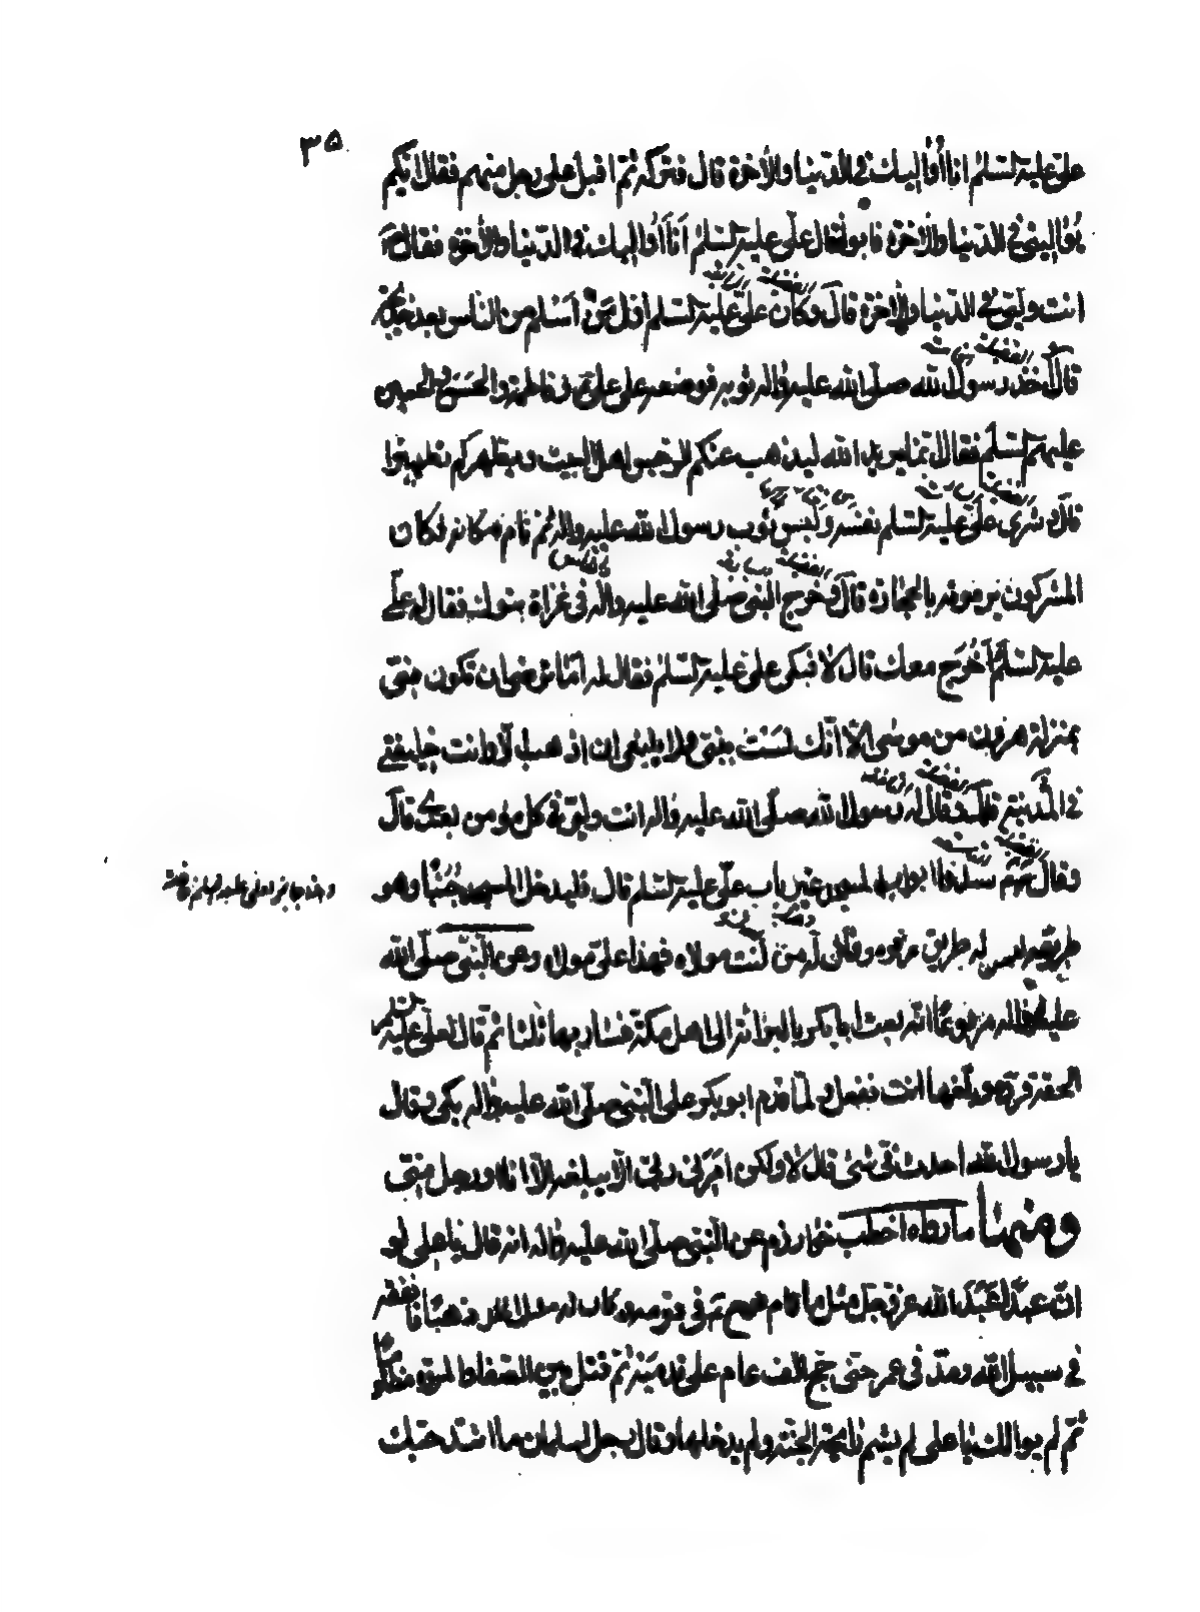 ٣٥
علي عليه السلم انا أواليك في الدنيا والآخرة قال فتركه ثم اقبل على رجل منهم فقال ايكم
يواليني في الدنيا والآخرة فابوا فقال علي عليه السلم أنا أواليك في الدنيا والآخرة فقال
انت وليي في الدنيا والآخرة قال وكان علي عليه السلم أول من أسلم من الناس بعد خديجة
قال وأخذ رسول الله صلى الله عليه واله ثوبه فوضعه على علي وفاطمة والحسن والحسين
عليهم السلم فقال انما يريد الله ليذهب عنكم الرجس اهل البيت ويطهركم تطهيرا
قال وشرى علي عليه السلم نفسه ولبس ثوب رسول الله عليه واله ثم نام مكانه وكان
المشركون يرمونه بالحجارة قال وخرج النبي صلى الله عليه واله في غزاة تبوك فقال له علي
عليه السلم أخرج معك قال لا فبكى علي عليه السلم فقال له اما ترضى ان تكون مني
بمنزلة هرون من موسى الا انك لست بنبي ولا ينبغي ان اذهب الا وانت خليفتي
في المدينة قال وقال له رسول الله صلى الله عليه واله انت وليي في كل مؤمن بعدي قال
وقال سدوا ابواب المسجد غير باب علي عليه السلم قال فيدخل المسجد جنبا وهو
طريقه ليس له طريق غيره وقال له من كنت مولاه فهذا علي مولاه وعن النبي صلى الله
عليه واله مرفوعا انه بعث ابا بكر بالبرائة الى اهل مكة فسار بها ثلثا ثم قال لعلي عليه السلم
الحقه فرده وبلغها انت ففعل ولما قدم ابو بكر على النبي صلى الله عليه واله بكى وقال
يا رسول الله احدث في شئ قال لا ولكن امرني ربي الا يبلغه الا انا او رجل مني
ومنها ما رواه اخطب خوارزم عن النبي صلى الله عليه واله انه قال يا علي لو
ان عبدا عبد الله عز وجل مثل ما قام نوح في قومه وكان له مثل احد ذهبا فانفقه
في سبيل الله ومد في عمره حتى حج الف عام على قدميه ثم قتل بين الصفا والمروة مظلوما
ثم لم يوالك يا علي لم يشم رائحة الجنة ولم يدخلها وقال رجل لسلمان ما اشد حبك